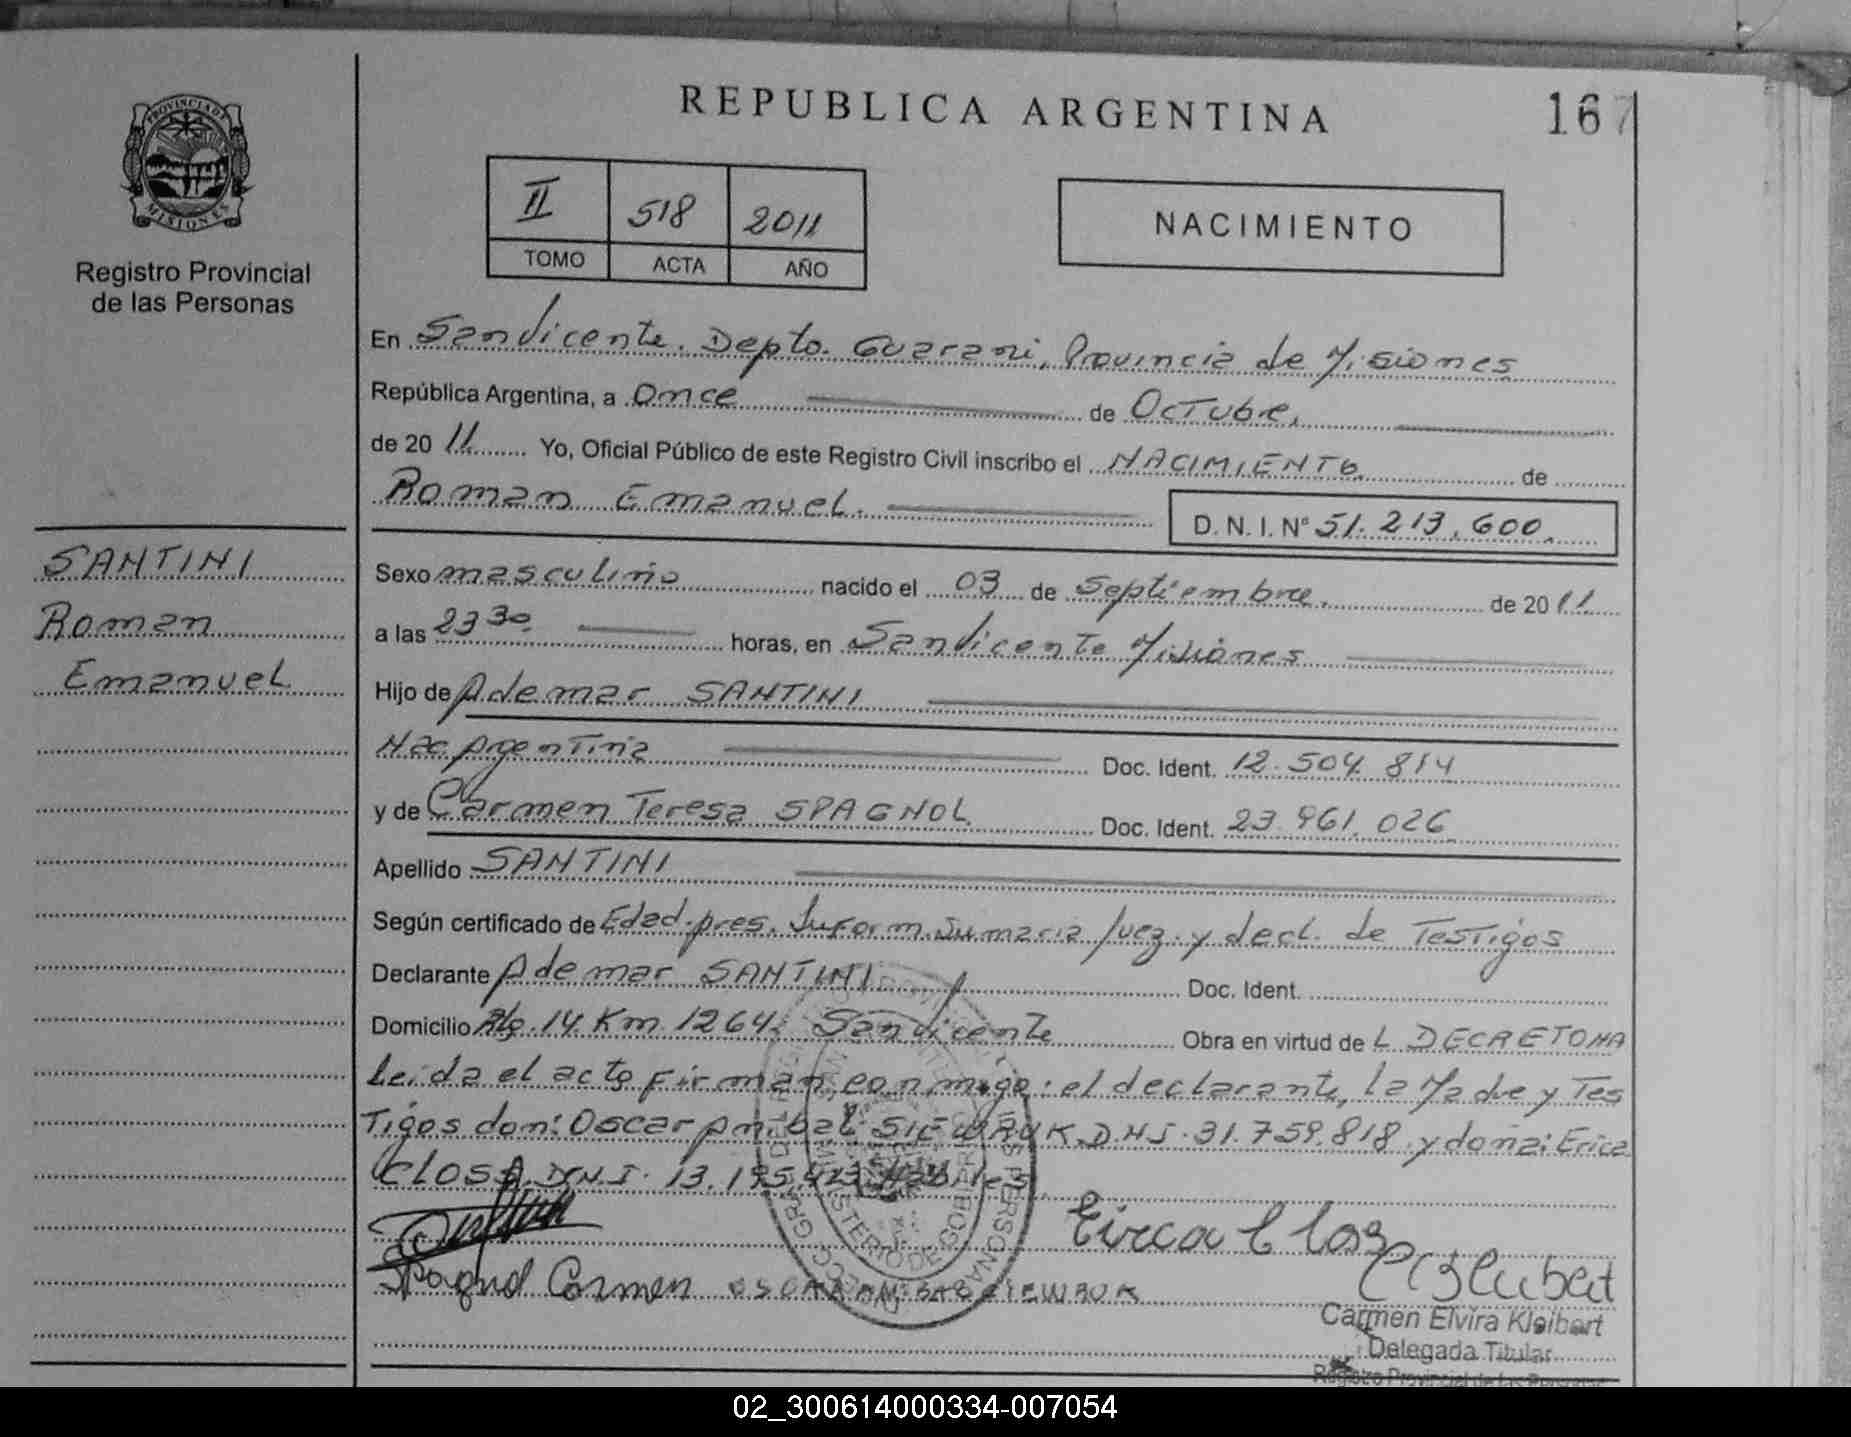 REPUBLICA ARGENTINA
167
PROVINCIA DE
MISIONES
Registro Provincial
de las Personas
II 518 2011
TOMO ACTA AÑO
NACIMIENTO
En San Vicente. Depto. Guarani, Provincia de Misiones
República Argentina, a Once de Octubre,
de 20 11 Yo, Oficial Público de este Registro Civil inscribo el NACIMIENTO de
Roman Emanuel.
D. N. I. N° 51.213.600.
SANTINI
Roman
Emanuel
Sexo masculino nacido el 03 de Septiembre de 20 11
a las 23 30 horas, en San Vicente Misiones
Hijo de Ademar SANTINI
Nac Argentina Doc. Ident. 12.504.814
y de Carmen Teresa SPAGNOL Doc. Ident. 23.961.026
Apellido SANTINI
Según certificado de Edad. pres. Inform. Sumaria Juez. y decl. de Testigos
Declarante Ademar SANTINI Doc. Ident.
Domicilio Rta. 14. Km. 1264. San Vicente Obra en virtud de L DECRETO NA
Leida el acto firman conmigo: el declarante, la Madre y Tes
Tigos don: Oscar Anibal SIEWRUK. D.N.I. 31.759.818 y doña: Erica
CLOSS D.N.I. 13.195.423 Habiles
Spagnol Carmen OSCAR ANIBAL SIEWRUK
Carmen Elvira Kleibert
Delegada Titular
Registro Provincial de las Personas
02_300614000334-007054